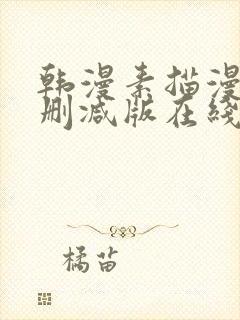 韩漫素描漫
删减版在线
橘苗